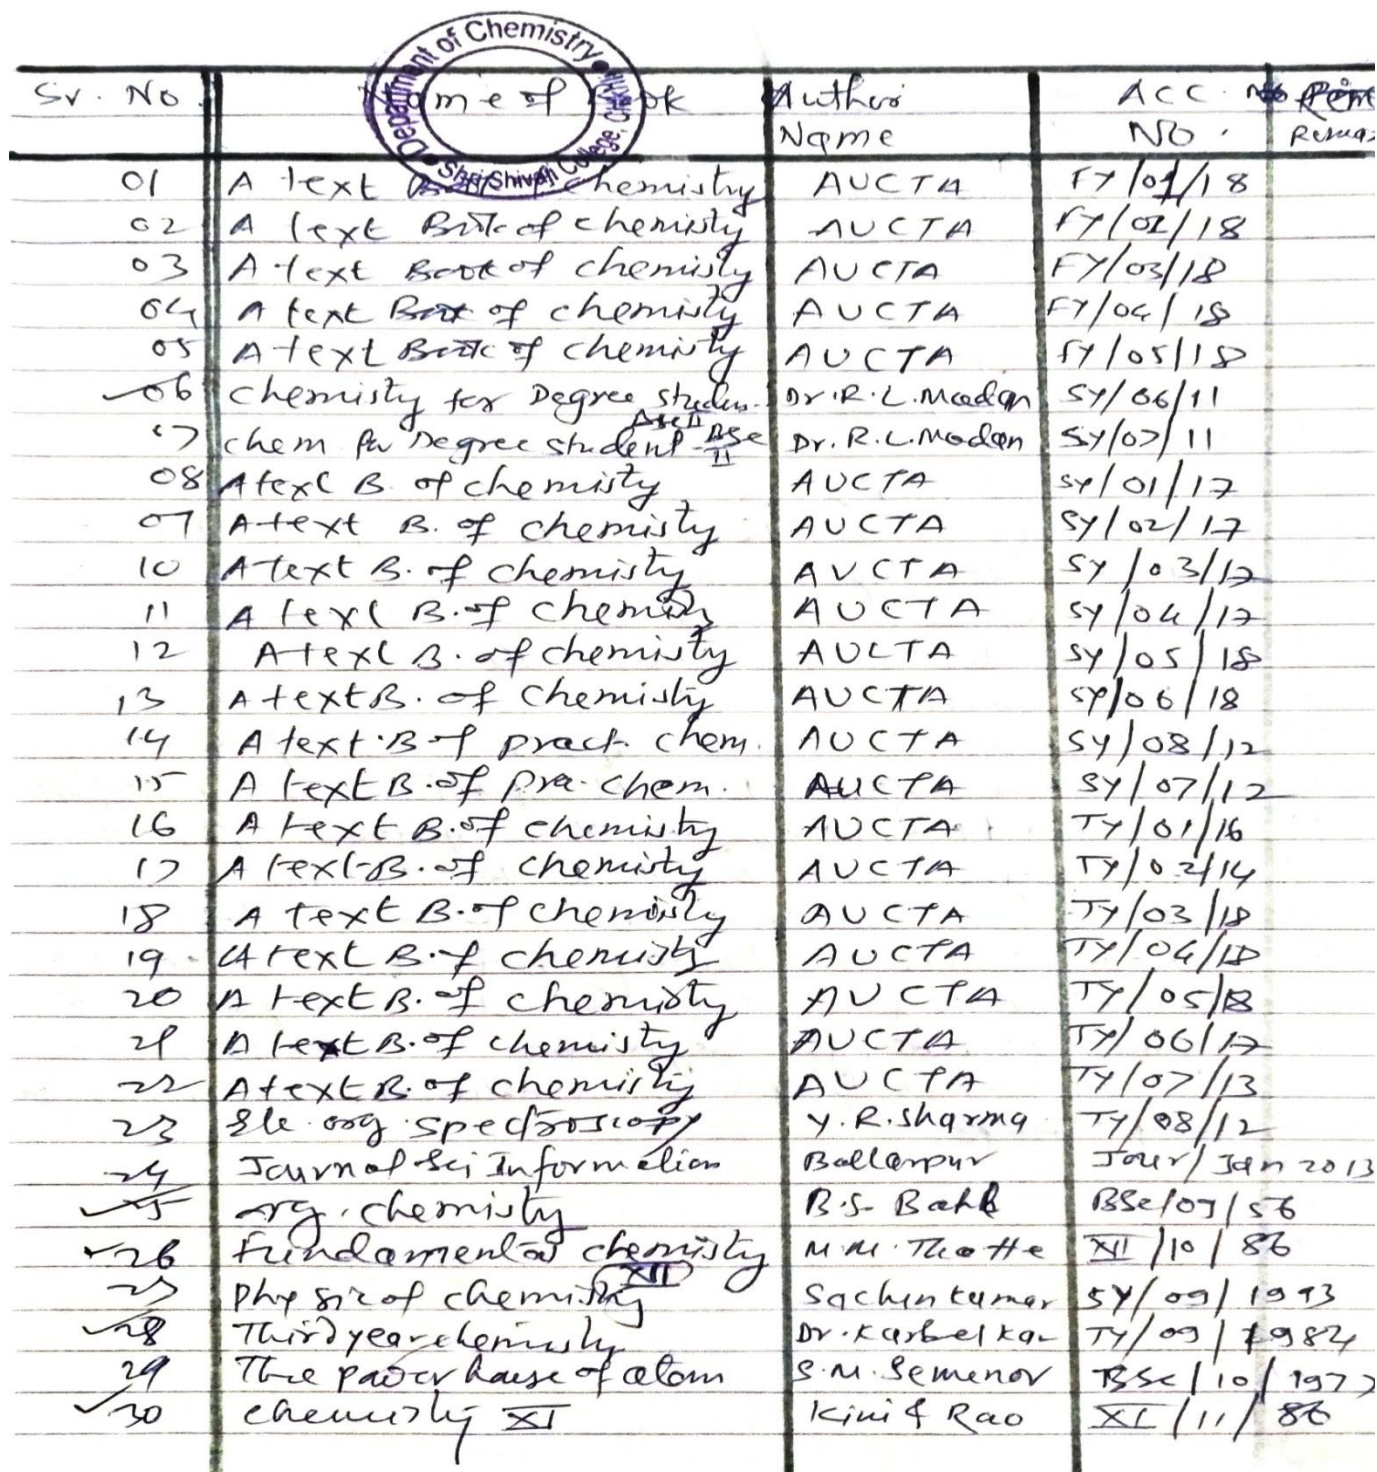 Department of Chemistry
Shri Shivaji College, Chikhli
Sr. No. Name of Book Author Name ACC. No. Remar
01 A text Book of chemistry AUCTA FY/01/18
02 A text Book of chemisty AUCTA FY/02/18
03 A text Book of chemisty AUCTA FY/03/18
04 A text Book of chemisty AUCTA FY/04/18
05 A text Book of chemisty AUCTA FY/05/18
06 Chemisty for Degree studen. Bsc II Dr. R. L. Madan SY/06/11
07 chem for Degree student - BSc II Dr. R. L. Madan SY/07/11
08 A text B. of chemisty AUCTA SY/01/17
09 A text B. of chemisty AUCTA SY/02/17
10 A text B. of chemisty AUCTA SY/03/17
11 A text B. of chemisty AUCTA SY/04/17
12 A text B. of chemisty AUCTA SY/05/18
13 A text B. of chemisty AUCTA SY/06/18
14 A text B of pract. chem. AUCTA SY/08/12
15 A text B. of pra. chem. AUCTA SY/07/12
16 A text B. of chemisty AUCTA TY/01/16
17 A text B. of chemisty AUCTA TY/02/14
18 A text B. of chemisty AUCTA TY/03/18
19 A text B. of chemisty AUCTA TY/04/18
20 A text B. of chemisty AUCTA TY/05/18
21 A text B. of chemisty AUCTA TY/06/17
22 A text B. of chemisty AUCTA TY/07/13
23 Ele. org. spectroscopy Y. R. Sharma TY/08/12
24 Journal Sci Information Ballarpur Jour/Jan 2013
25 org. chemisty B. S. Bahl BSc/09/56
26 Fundamental chemisty XII M. M. Thatte XII/10/86
27 of chemisty Sachin kumar SY/09/1993
28 Third year chemisty Dr. TY/09/1982
29 The power house of atom S. M. Semenov BSc/10/1977
30 chemisty XI Kini & Rao XI/11/86